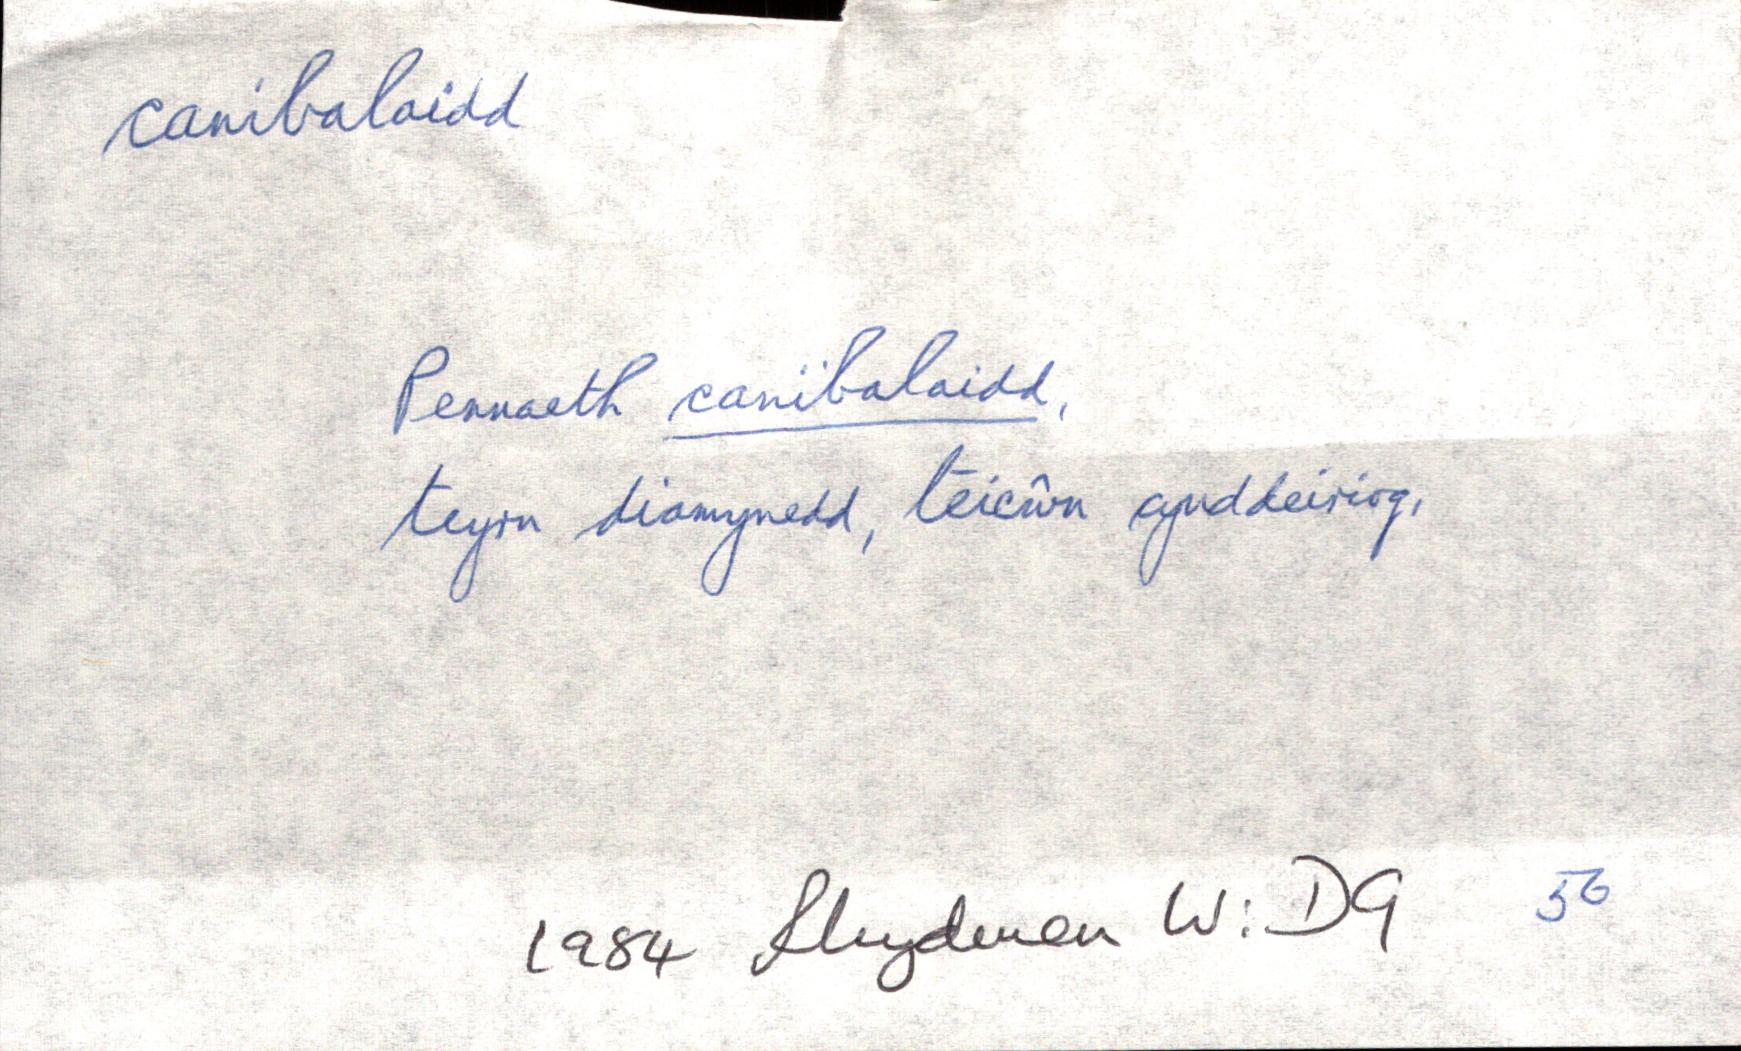 canibalaidd
Pennaeth canibalaidd,
teyrn diamynedd, teicŵn cynddeiriog,
1984 Rhydwen W: DG 56